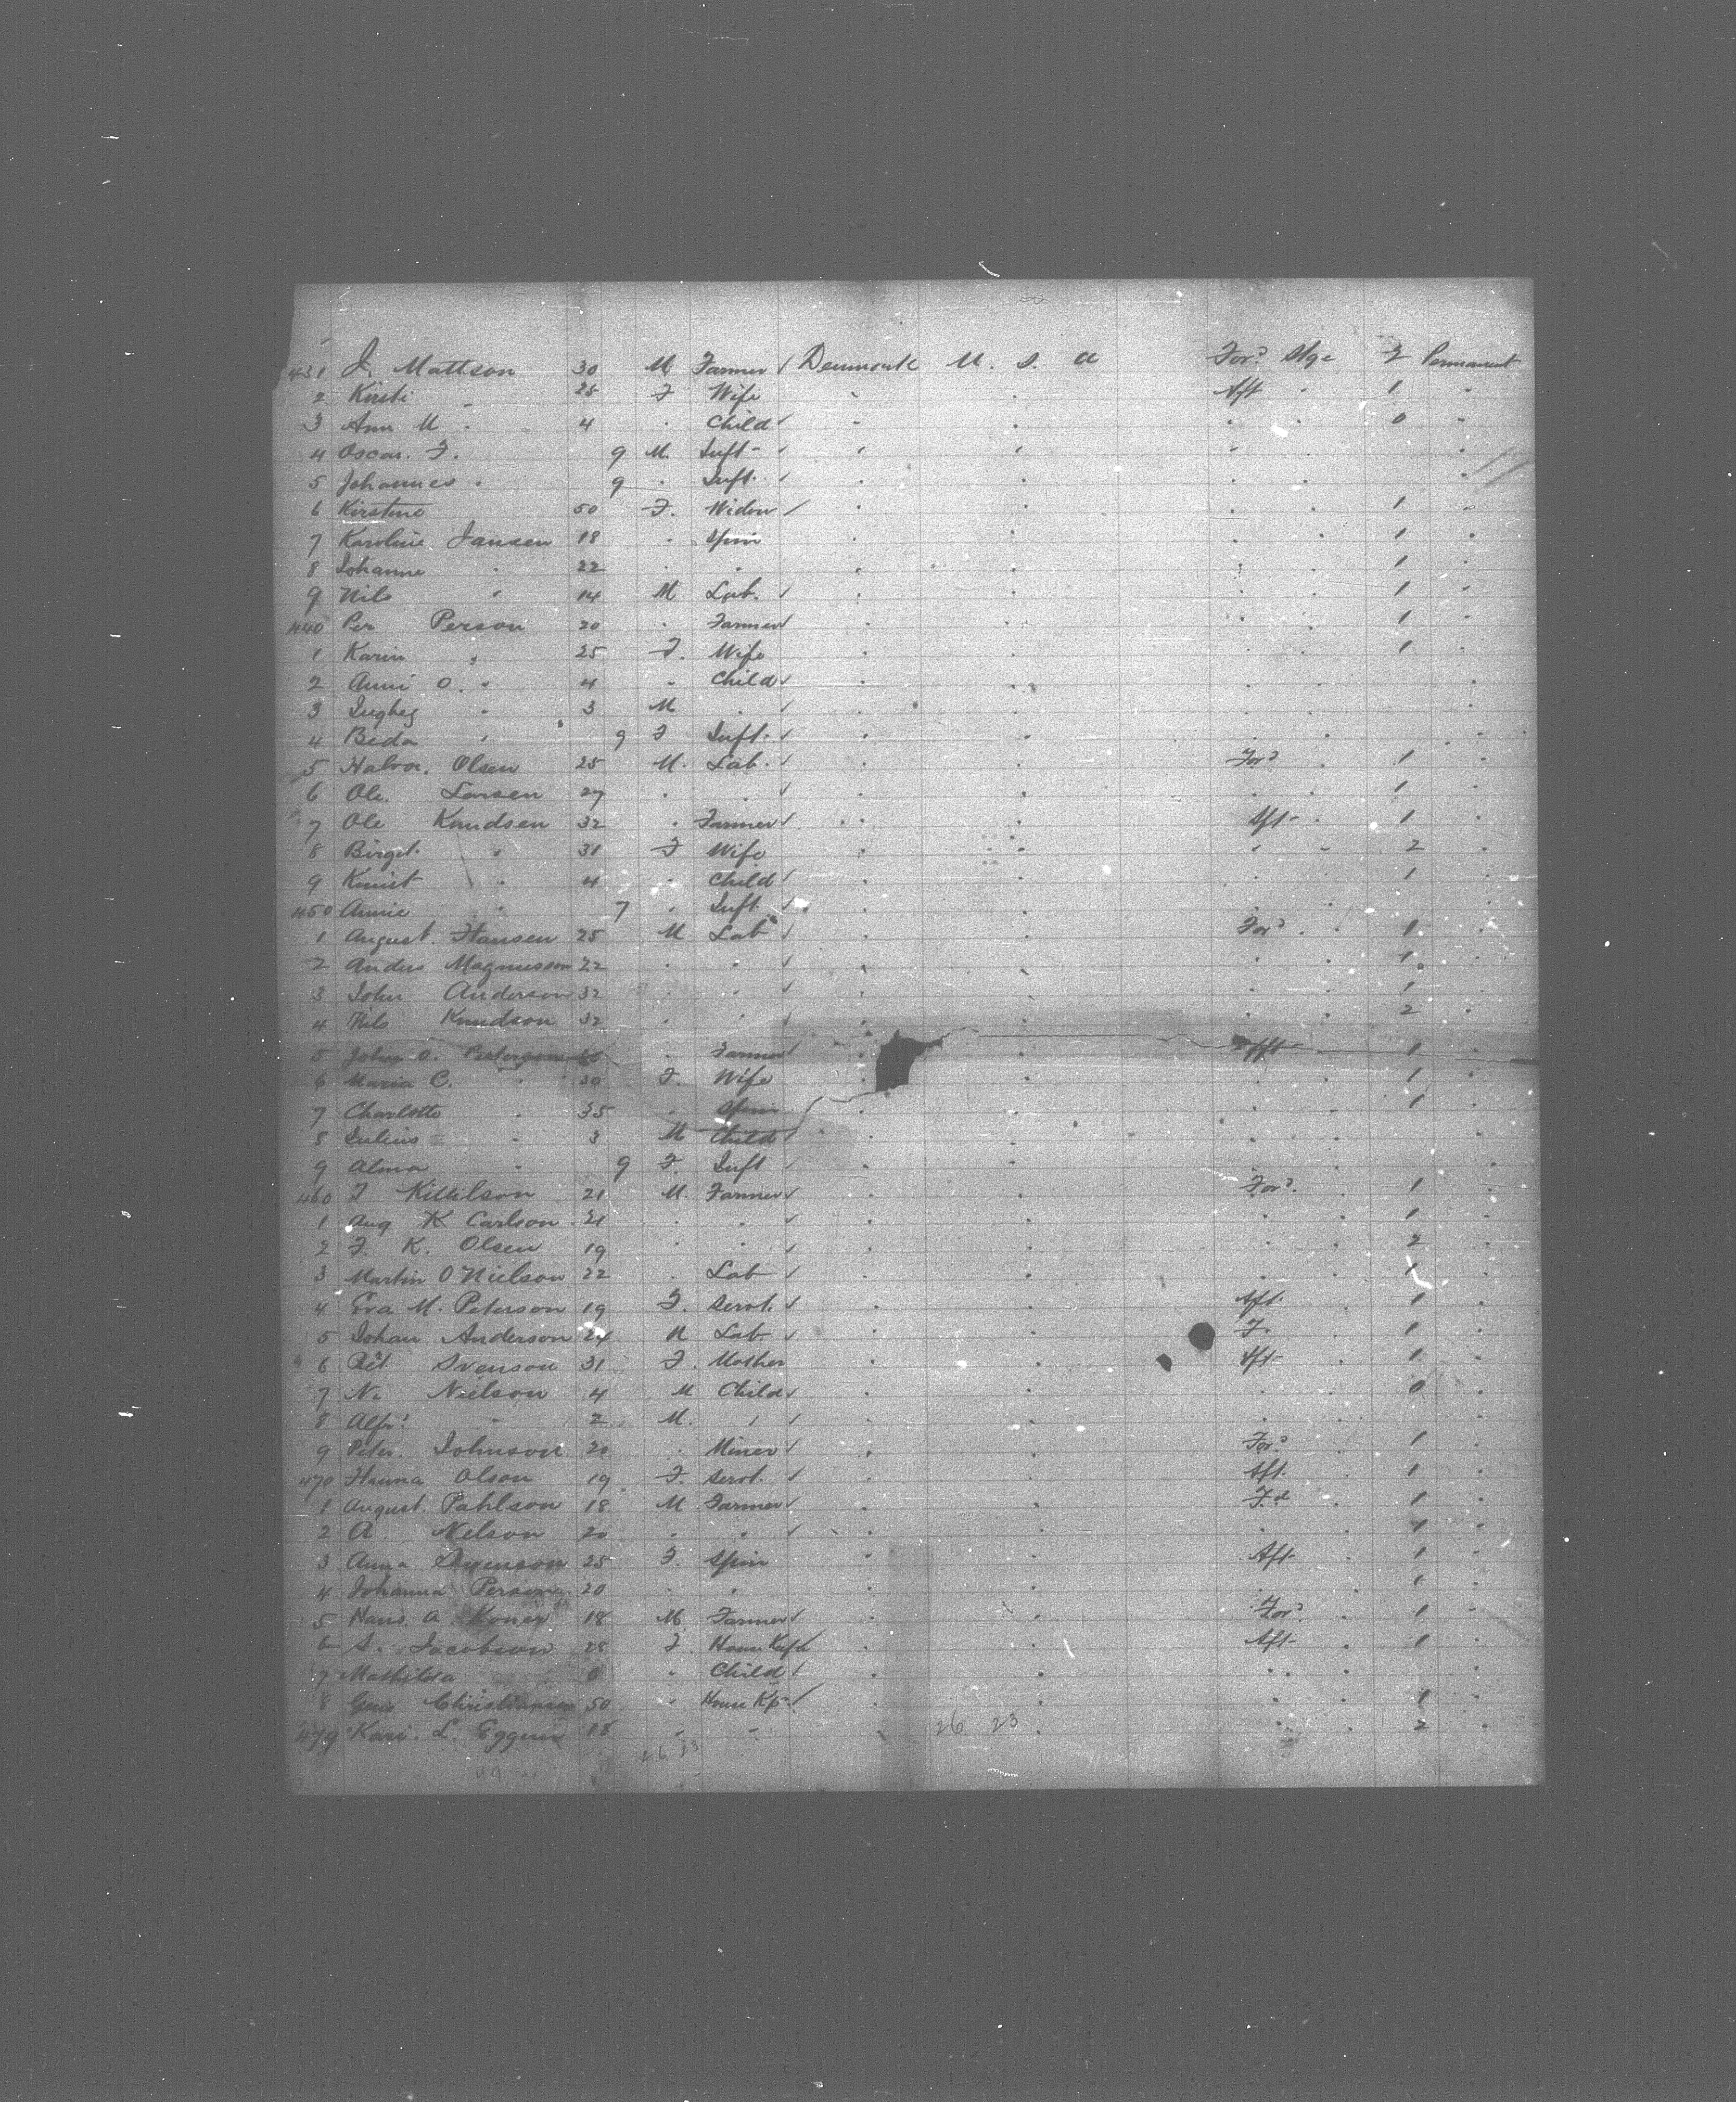 431 J. Mattson 30 M Farmer ✓ Denmark U. S. A For? Stge 2 Permanent
2 Kirsti " 25 F Wife " " Aft " 1 "
3 Ann M " 4 " Child ✓ " " " " 0 "
4 Oscar. F. 9 M. Inft - ✓ " " " "
5 Johannes " 9 " Inft. ✓ " " " " "
6 Kirstine 50 F. Widow ✓ " " " " 1 "
7 Karoline Jansen 18 " Spin " " " " 1 "
8 Johanne " 22 " " " " " " 1 "
9 Nils " 14 M Lab. ✓ " " " " 1 "
440 Per Person 20 " Farmer ✓ " " " " 1 "
1 Karin " 25 F. Wife " " " " 1 "
2 Anni O. " 4 " Child ✓ " " " " "
3 " 3 M " ✓ " " " " "
4 Beda " 9 F Inft. ✓ " " " " "
5 Halvor. Olsen 25 M. Lab. ✓ " " For? " 1 "
6 Ole. Larsen 27 " " ✓ " " " " 1 "
7 Ole Knudsen 32 " Farmer ✓ " " Aft - " 1 "
8 Birget " 31 F Wife " " " " 2 "
9 " 4 " Child ✓ " " " " 1 "
450 Annie " 7 " Inft. ✓ " " " " "
1 August. Hansen 25 M Lab ✓ " " For? " 1 "
2 Andus Magnusson 22 " " ✓ " " " " 1 "
3 John Anderson 32 " " ✓ " " " " 1 "
4 Nils Knudson 32 " " ✓ " " " " 2 "
5 John O. " Farmer ✓ " " Aft " 1 "
6 Maria C. " 30 F. Wife " " " " 1 "
7 Charlotte " 35 " Spin " " " " 1 "
8 Julius " 3 M Child ✓ " " " " "
9 Alma " 9 F. Inft ✓ " " " " "
460 F Killilson 21 M. Farmer ✓ " " For? " 1 "
1 Aug K Carlson 21 " " ✓ " " " " 1 "
2 F. K. Olsen 19 " " ✓ " " " " 2 "
3 Martin O Nielson 22 " Lab ✓ " " " " 1 "
4 Eva M. Peterson 19 F. Servt. ✓ " " Aft. " 1 "
5 Johan Anderson 24 M Lab ✓ " " F. " 1 "
6 Svenson 31 F. Mother " " Aft - " 1 "
7 N. Nielson 4 M Child ✓ " " " " 0 "
8 Alfr? " 2 M. " ✓ " " " " "
9 Peter. Johnson 20 " Miner ✓ " " For? " 1 "
470 Hanna Olson 19 F. Servt. ✓ " " Aft. " 1 "
1 August. Pahlson 18 M Farmer ✓ " " F.d " 1 "
2 A. Nelson 20 " " ✓ " " " " 1 "
3 Anna Swenson 25 F. Spin " " Aft- " 1 "
4 Johanna Person 20 " " " " " " 1 "
5 Hans. A. 18 M Farmer ✓ " " For? " 1 "
6 A. Jacobson 28 F. House Kepr " " Aft - " 1 "
7 Mathilda " " Child ✓ " " " " "
8 Christiansen 50 " House Kp ✓ " " " " 1 "
479 Kari. L. Eggum 18 " " " 26. 23 " " " 2 "
26 23